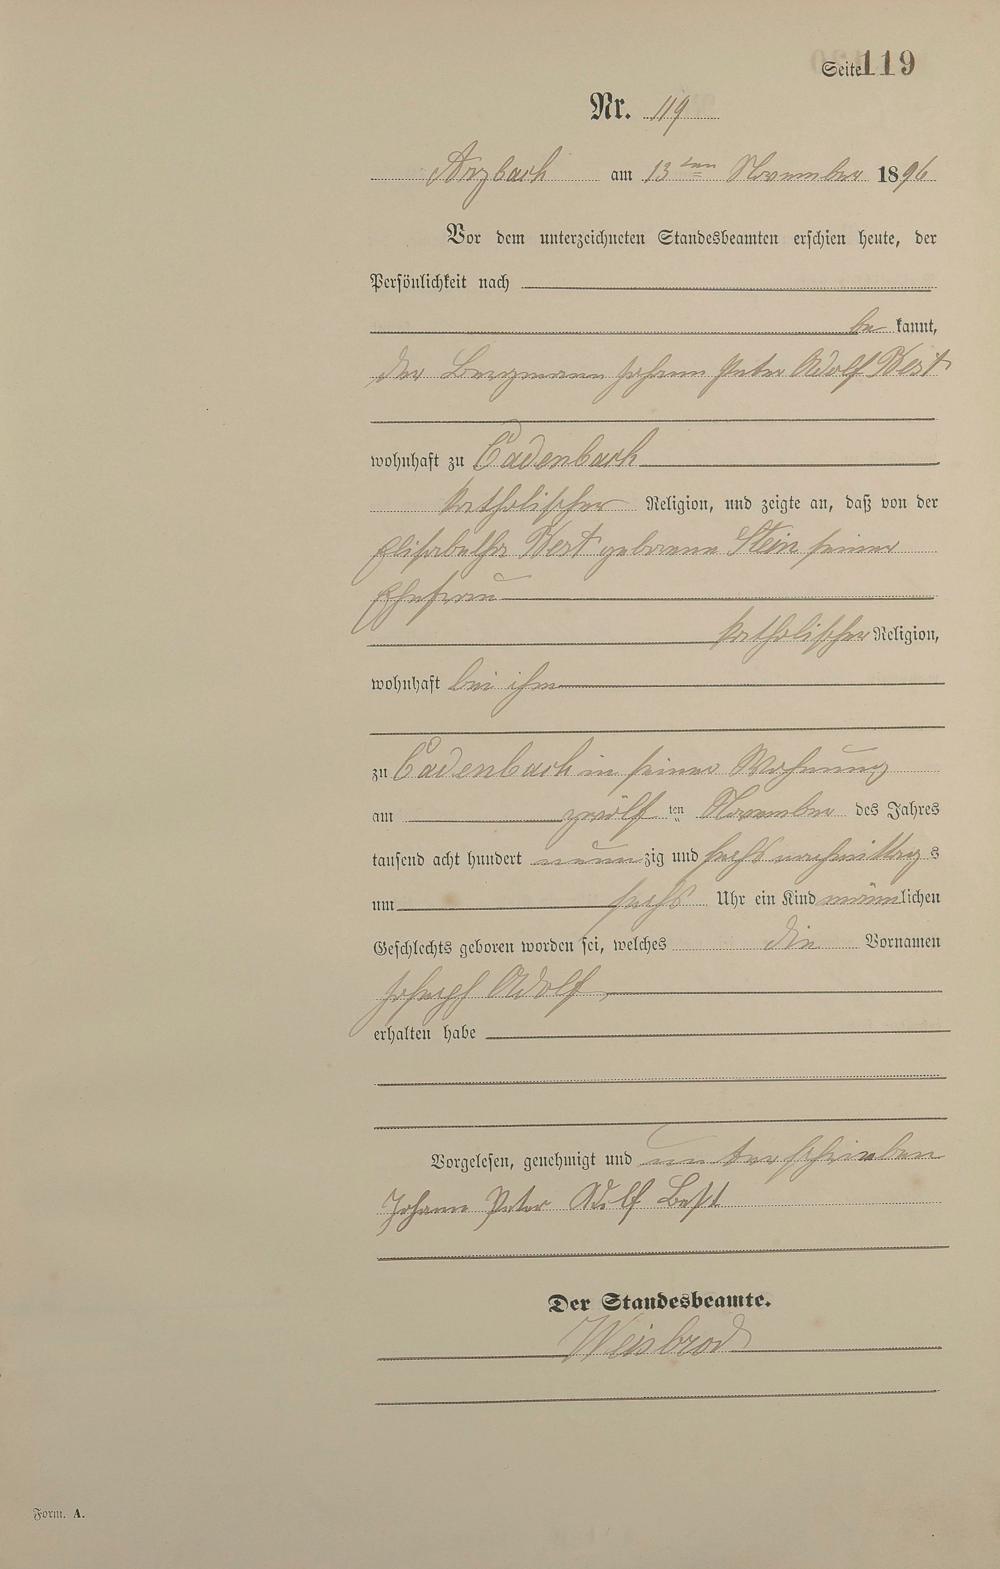 Seite 119
Nr. 119
Arzbach am 13ten November 1896
Vor dem unterzeichneten Standesbeamten erschien heute, der
Persönlichkeit nach
be kannt,
der Bergmann Johann Peter Adolf Best
wohnhaft zu Cadenbach
katholischer Religion, und zeigte an, daß von der
Elisabetha Best geborene Stein seiner
Ehefrau
katholischer Religion,
wohnhaft bei ihm
zu Cadenbach in seiner Wohnung
am zwölf ten November des Jahres
tausend acht hundert neun zig und sechs nachmittag s
um sechs Uhr ein Kind männ lichen
Geschlechts geboren worden sei, welches die Vornamen
Joseph Adolf
erhalten habe
Vorgelesen, genehmigt und unterschrieben
Johann Peter Adolf Best
Der Standesbeamte.
Weisbrod
Form. A.